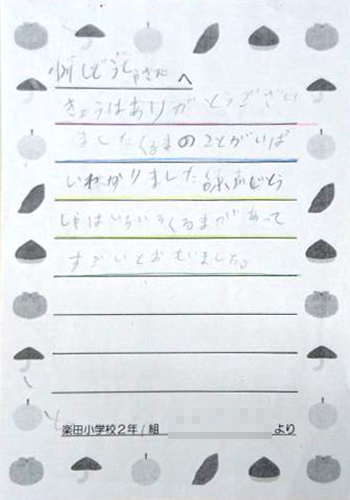 じどうしゃさんへ
きょうはありがとうござい
ましたくるまのことがいぱ
いわかりましたじどう
しゃはいろいろくるまがあって
すごいとおもいました。
楽田小学校2年1組 より